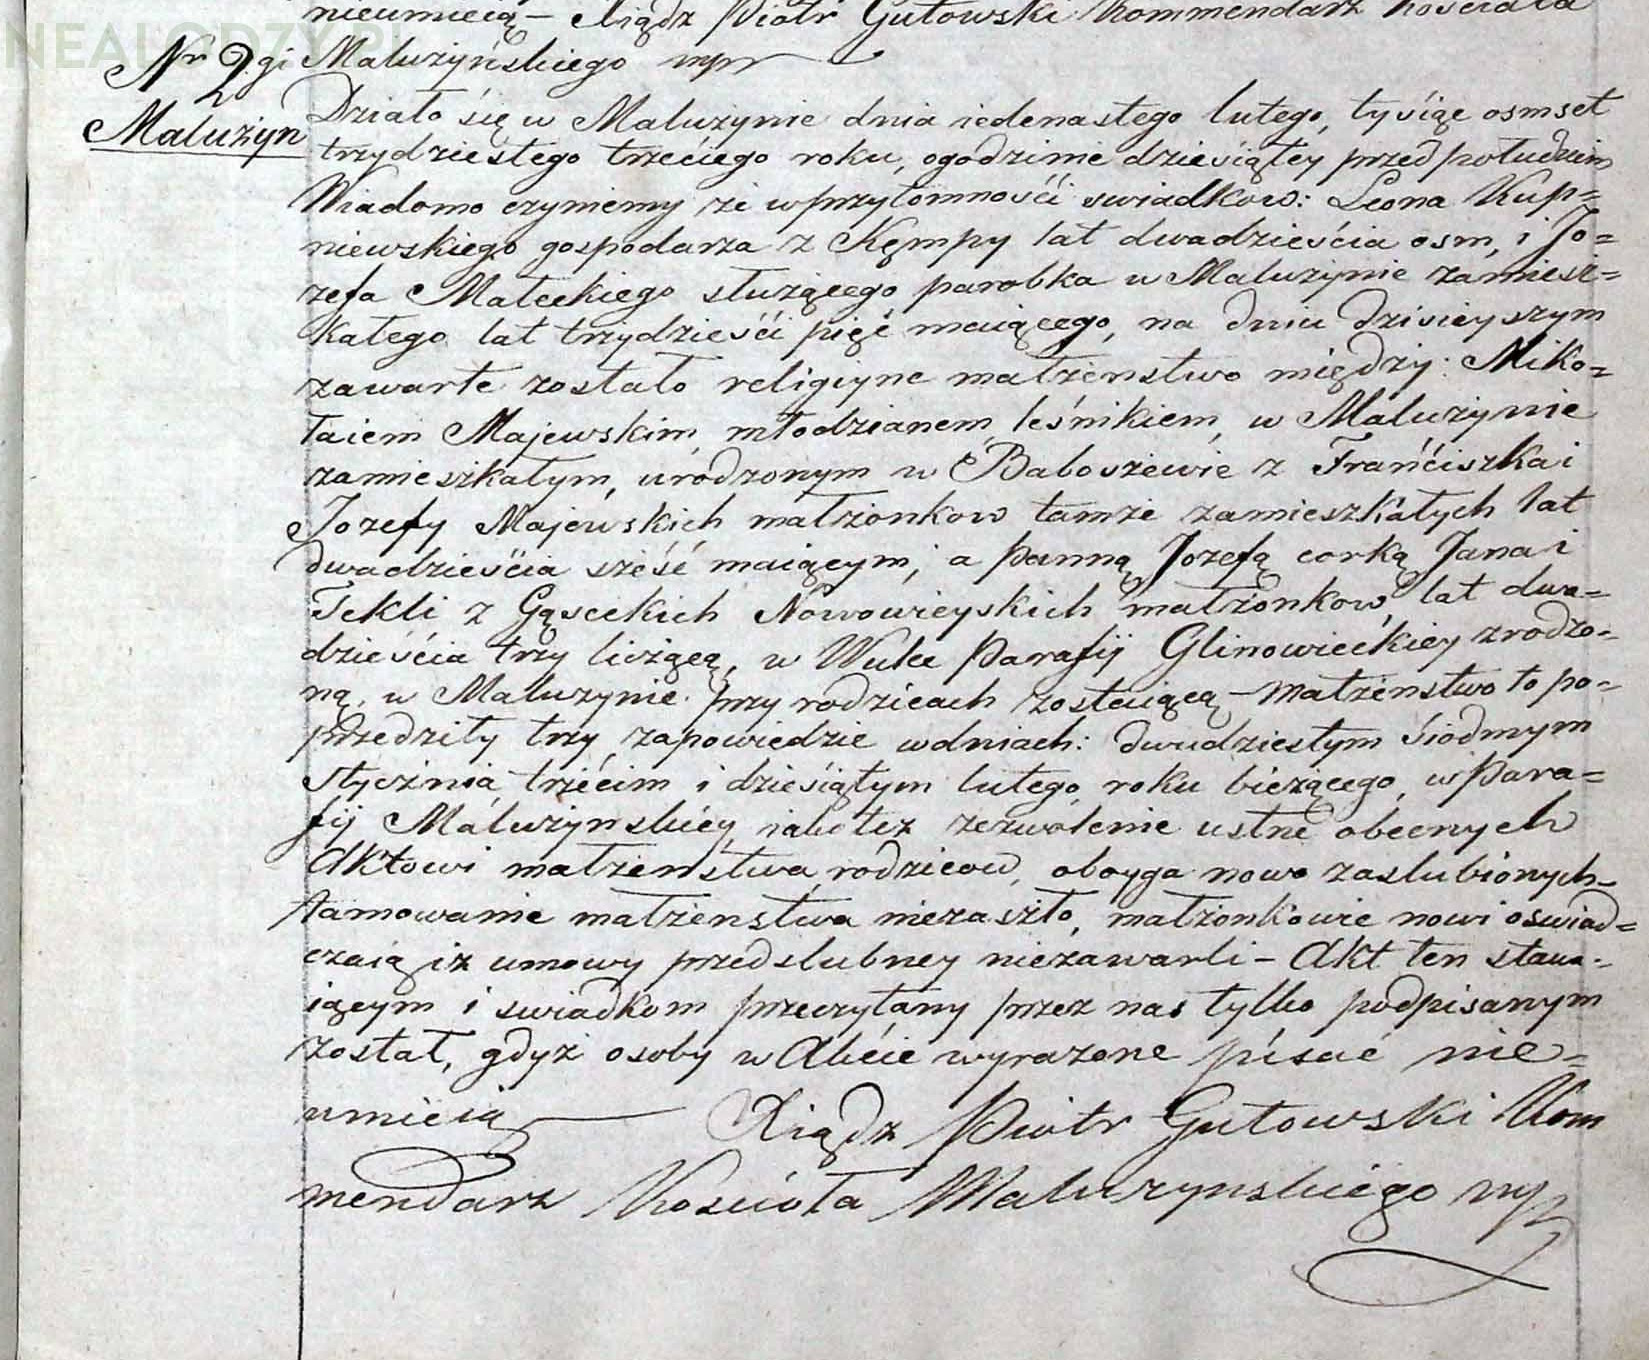 NEALODZY.PL
nieumieią – Xiądz Piotr Gutowski Kommendarz Kościoła
Nr 2gi Maluzyńskiego mpr
Malużyn
Działo się w Maluzynie dnia iedenastego lutego, tysiąc osmset
trzydziestego trzećiego roku, ogodzinie dziesiątey przed południem
Wiadomo czyniemy, że wprzytomnośći swiadkow: Leona Kup=
niewskiego gospodarza z Kęmpy lat dwadzieścia osm, i Jo=
zefa Małeckiego służącego parobka w Maluzynie zamiesz=
kałego lat trzydzieśći pięć maiącego, na dniu dzisieyszym
zawarte zostało religiyne małżenstwo między: Miko=
łaiem Majewskim, młodzianem, leśnikiem, w Maluzynie
zamieszkałym, urodzonym w Baboszewie z Franćiszka i
Jozefy Majewskich małżonkow tamże zamieszkałych lat
dwadzieśćia sześć maiącym; a Panną Jozefą corką Jana i
Tekli z Gąseckich Nowowieyskich małżonkow, lat dwa=
dzieśćia trzy liczącą, w Wulce Parafij Glinowieckiey zrodzo=
ną, w Maluzynie przy rodzicach zostaiącą – Małżenstwo to po=
przedziły trzy zapowiedzie wdniach: dwudziestym śiodmym
Stycznia, trzećim i dziesiątym lutego, roku bieżącego, w Para=
fij Małużynskiéy, iakoteż zezwolenie ustne obecnych
Aktowi małżenstwa, rodzicow, oboyga nowo zaslubionych –
tamowanie małżenstwa niezaszło, małżonkowie nowi oswiad=
czaią iż umowy przedslubney niezawarli – Akt ten stawa=
iącym i swiadkom przeczytany przez nas tylko podpisanym
został, gdyż osoby w Akćie wyrażone pisać nie=
umieią – Xiądz Piotr Gutowski Kom
mendarz Kościoła Maluzynskiégo mpr